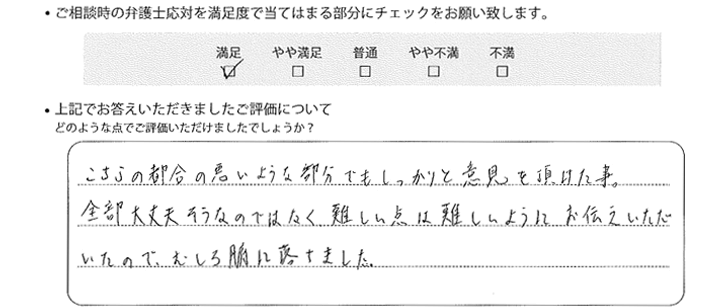 • ご相談時の弁護士応対を満足度で当てはまる部分にチェックをお願い致します。
満足 やや満足 普通 やや不満 不満
☑ □ □ □ □
• 上記でお答えいただきましたご評価について
どのような点でご評価いただけましたでしょうか？
こちらの都合の悪いような部分でもしっかりと意見を頂けた事。
全部大丈夫そうなのではなく、難しい点は難しいようにお伝えいただ
いたので、むしろ腑に落ちました。